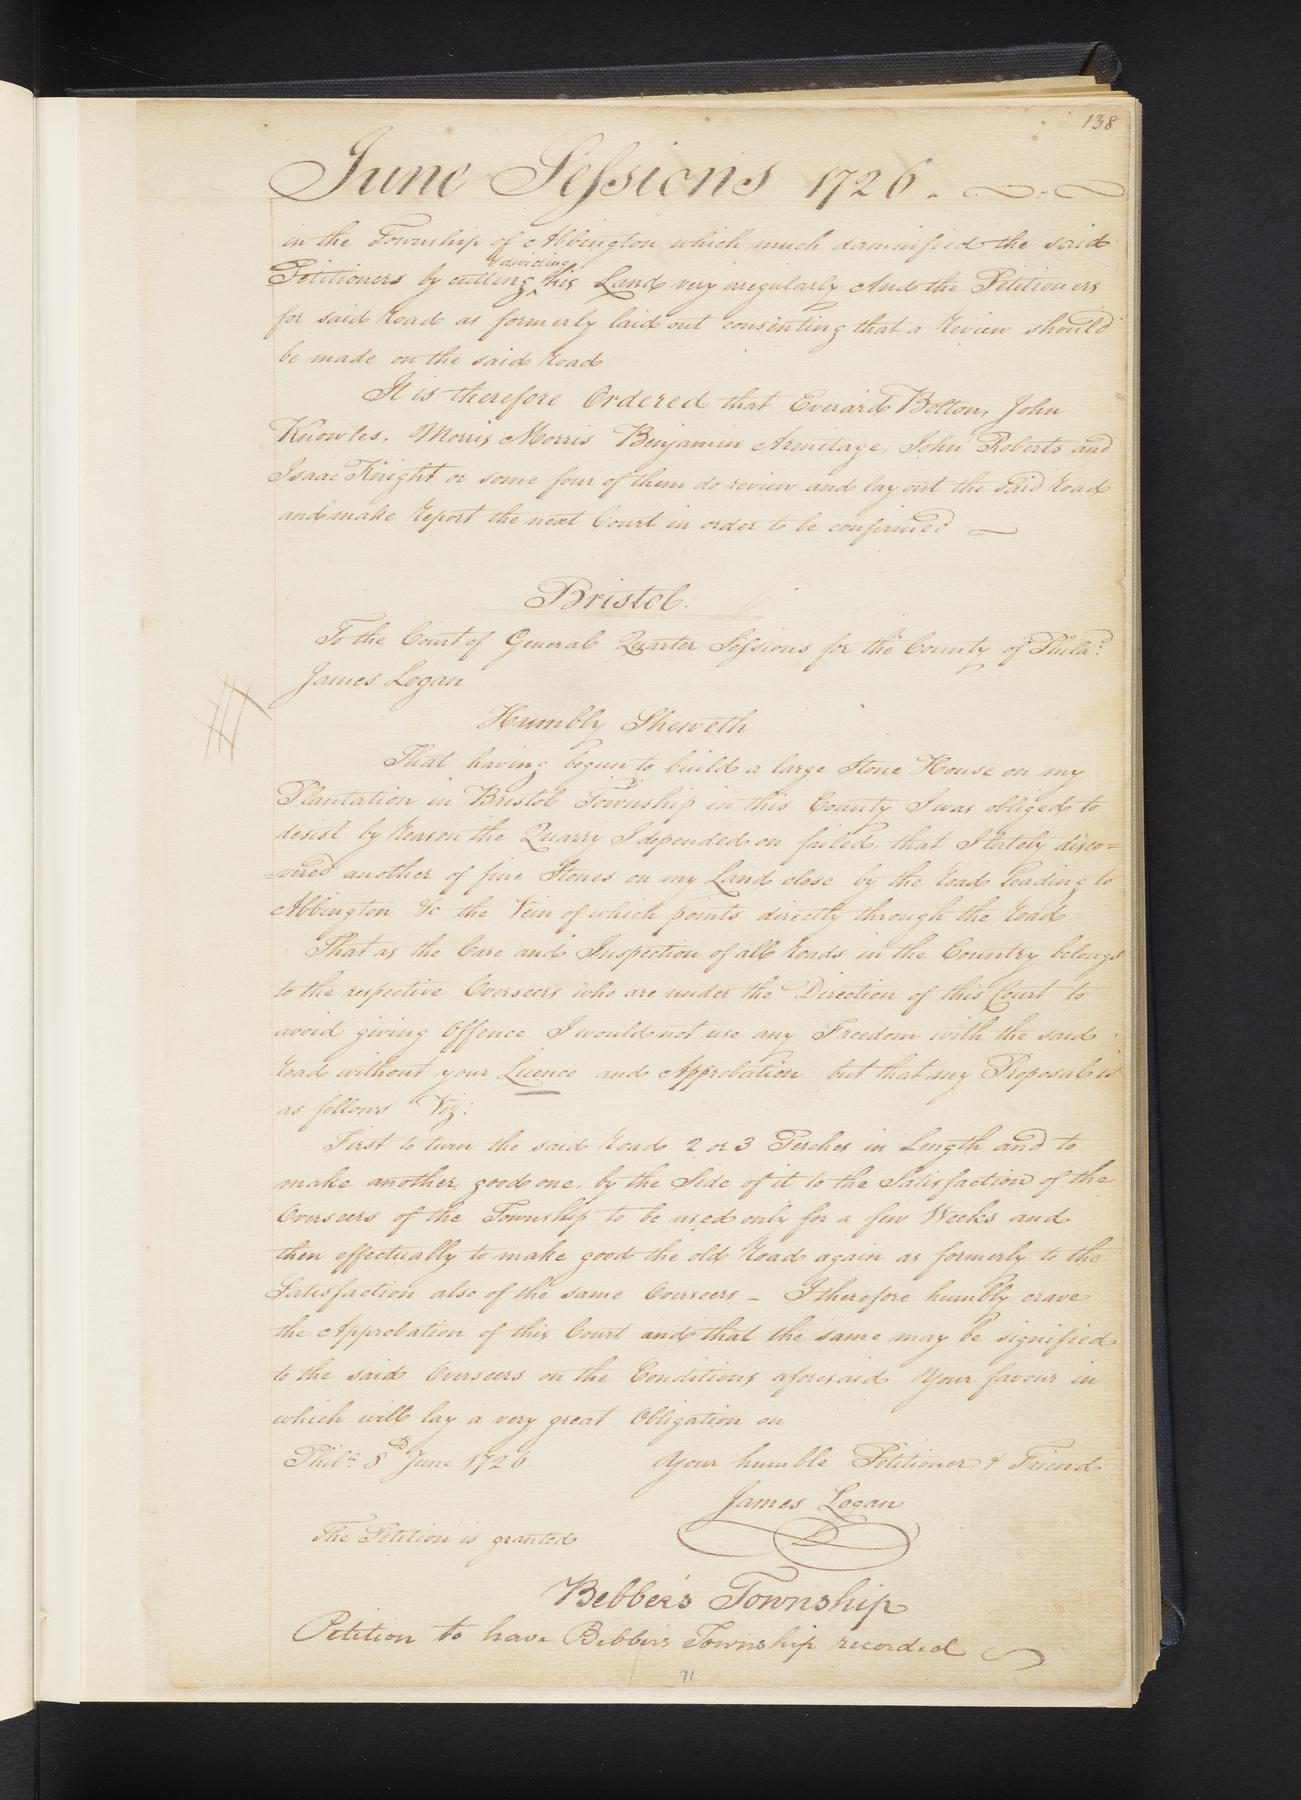 138
June Sessions 1726.
in the Township of Abbington which much damnified the said
& dividing
Petitioners by cutting ^ his Land very irregularly And the Petitioners
for said Road as formerly laid out consenting that a Review should
be made on the said Road
It is therefore Ordered that Everard Bolton, John
Knowles, Morris Morris Benjamin Armitage, John Roberts and
Isaac Knight or some four of them do review and lay out the said Road
and make Report the next Court in order to be confirmed
Bristol.
To the Court of General Quarter Sessions for the County of Philad.
James Logan
Humbly Sheweth
That having begun to build a large Stone House on my
Plantation in Bristol Township in this County I was obliged to
desist by Reason the Quarry I depended on failed, that I lately disco=
=vered another of fine Stones on my Land close by the Road leading to
Abbington &c the Vein of which points directly through the Road
That as the Care and Inspection of all Roads in the Country belongs
to the respective Overseers who are under the Direction of this Court to
avoid giving Offence I would not use any Freedom with the said
Road without your Licence and Approbation but that my Proposal is
as follows Viz:
First to turn the said Road 2 or 3 Perches in Length and to
make another good one, by the Side of it to the Satisfaction of the
Overseers of the Township to be used only for a few Weeks and
then effectually to make good the old Road again as formerly to the
Satisfaction also of the same Overseers - I therefore humbly crave
the Approbation of this Court and that the same may be signified
to the said Overseers on the Conditions aforesaid Your favour in
which will lay a very great Obligation on
Phila. June 1726 Your humble Petitioner & Friend
James Logan
The Petition is granted
Bebber's Township
Petition to have Bebbers Township recorded
71